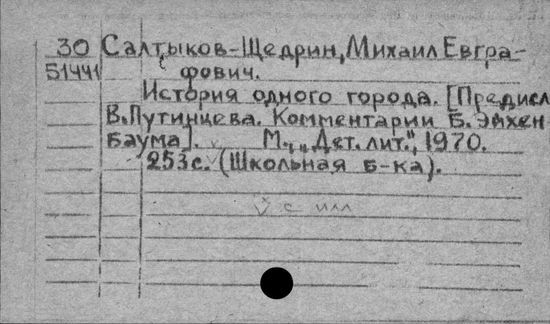 30 Салтыков-Щедрин, Михаил Евгра-
51441 фович.
История одного города. [Предисл
В. Путинцева. Комментарии Б. Эйхен
баума]. М., „Дет. лит.", 1970.
253с. (Школьная б-ка).
V с илл